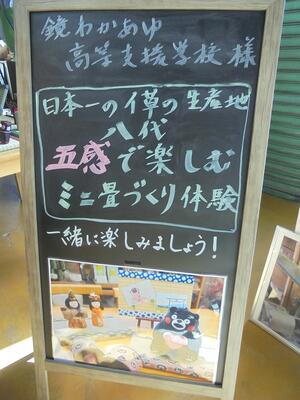 鏡わかあゆ
高等支援学校 様
日本一のイ草の生産地
八代
五感で楽しむ
ミニ畳づくり体験
一緒に楽しみましょう!